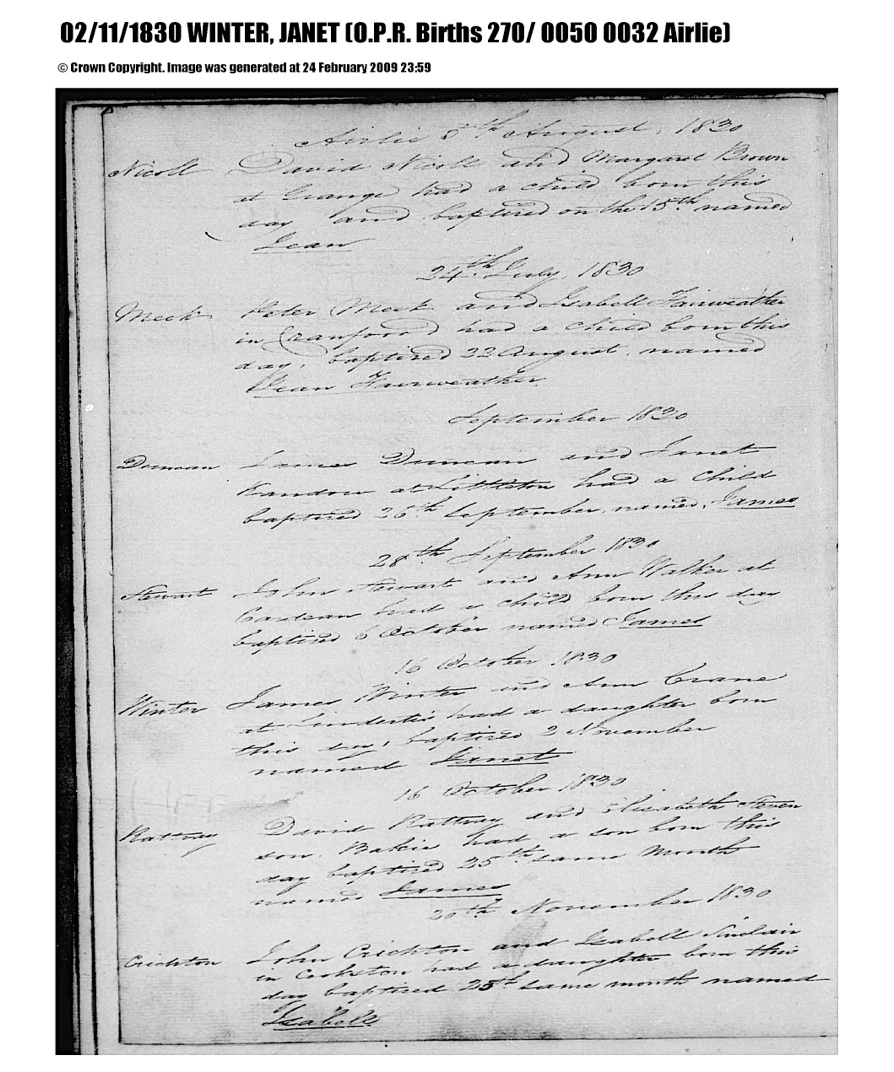 02/11/1830 WINTER, JANET (O.P.R. Births 270/ 0050 0032 Airlie)
© Crown Copyright. Image was generated at 24 February 2009 23:59
Airlie 8th August, 1830
Nicoll David Nicoll and Margaret Brown
at Grange had a child born this
day and baptized on the 15th named
Jean
24th July, 1830
Meek Peter Meek and Isabell Fairweather
in had a child born this
day, baptized 22 August, named
Jean Fairweather
September 1830
Duncan James Duncan and Janet
at Littleton had a Child
baptized 26th September, named, James
28th September 1830
Stewart John Stewart and Ann Walker at
Cardean had a child born this day
baptized 6 October named James
16 October 1830
Winter James Winter and Ann Crane
at Lindertis had a daughter born
this day, baptized 2 November
named Janet
16 October 1830
Rattray David Rattray and Elisabeth Steven
son. had a son born this
day baptized 25th same Month
named James
November 1830
Crichton John Crichton and Isabell Sinclair
in Cookston had a daughter born this
day baptized 25th same month named
Isabell